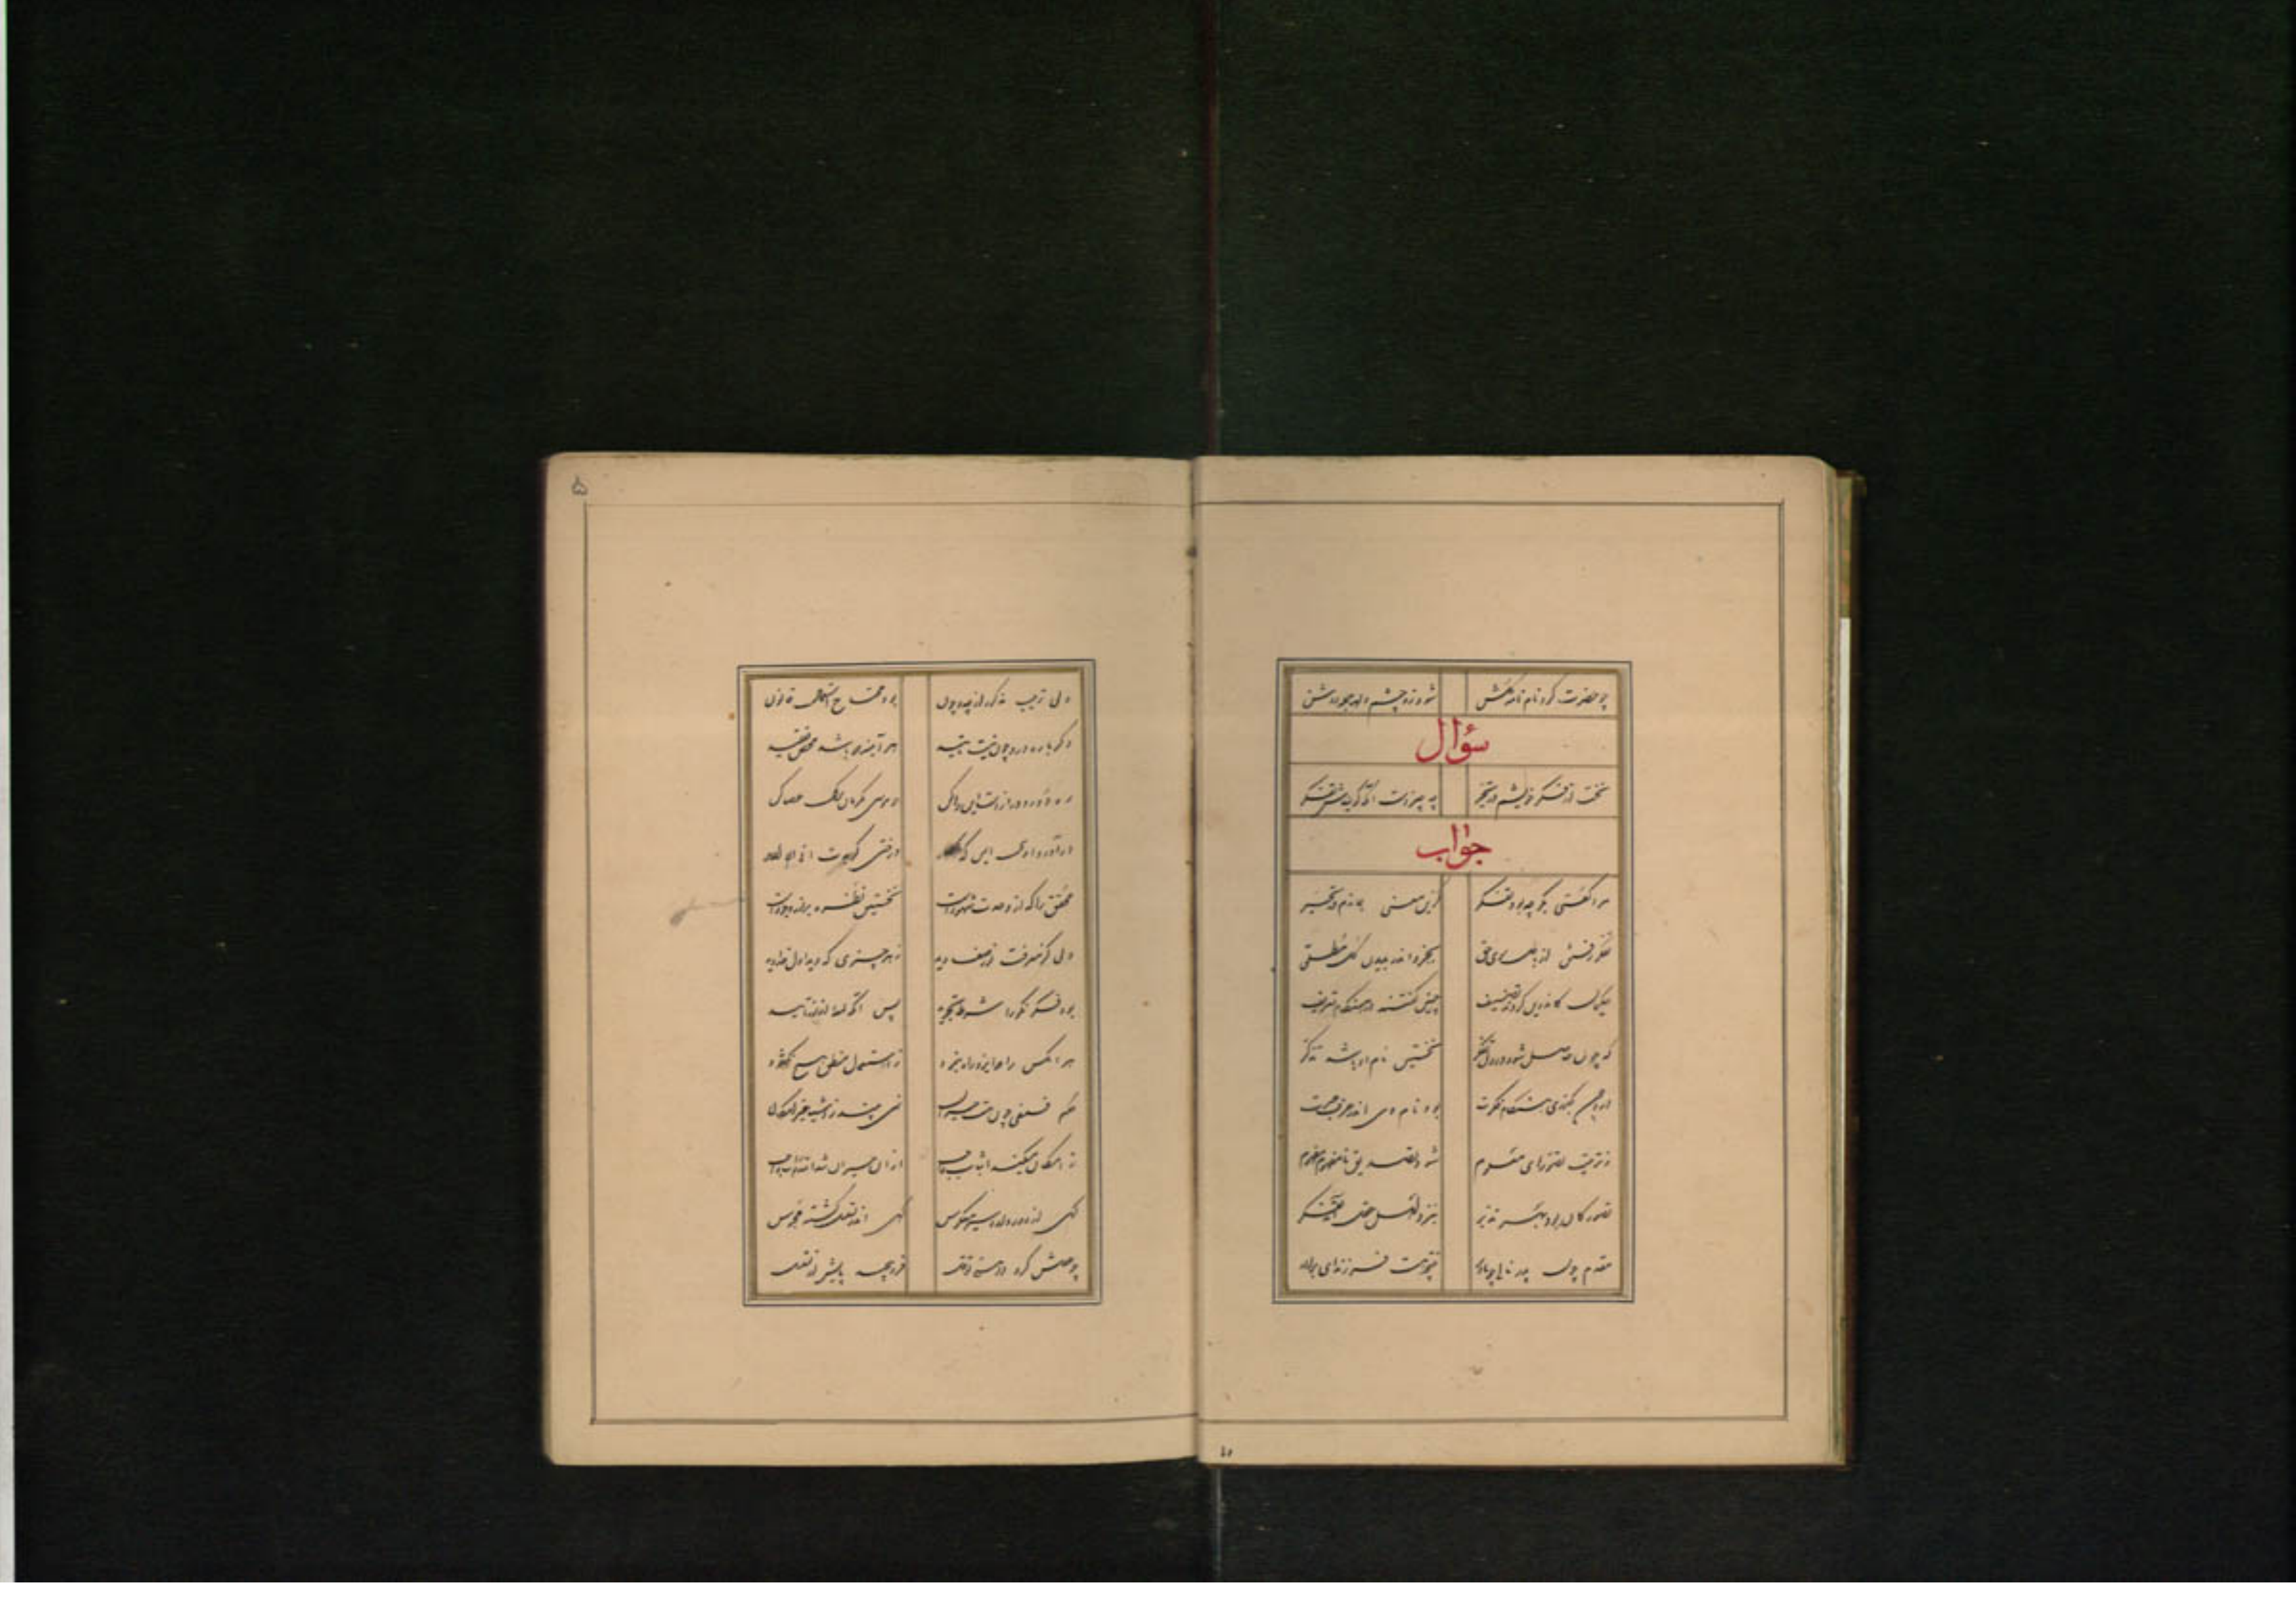 چو حضرت کرد نام نامه گلشن شود زو چشم دلها جمله روشن
سؤال
نخست از فکر خویشم در تحیر چه چیزست آنکه گویندش تفکر
جواب
مرا گفتی بگو چبود تفکر کزین معنی بماندم در تحیر
تفکر رفتن از باطل سوی حق بجزو اندر بدیدن کل مطلق
حکیمان کاندرین کردند تصنیف چنین گفتند در هنگام تعریف
که چون حاصل شود در دل تصور نخستین نام او باشد تذکر
وزو چون بگذری هنگام فکرت بود نام وی اندر عرف عبرت
ز ترتیب تصورهای معلوم شود تصدیق نامفهوم مفهوم
تصور کان بود بهر تدبر بنزد اهل عقل آمد تفکر
مقدم چون پدر تالی چو مادر نتیجه هست فرزند ای برادر
ولی ترتیب مذکور از چه و چون بود محتاج استعمال قانون
دگر باره درو چون نیست تأیید هر آینه که باشد محض تقلید
ره دور و درازست این رها کن چو موسی یکزمان ترک عصا کن
درآ در وادی ایمن که درختی گویدت انی انا الله
محقق را که از وحدت شهودست نخستین نظره بر نور وجودست
دلی کز معرفت نور و صفا دید ز هر چیزی که دید اول خدا دید
بود فکر نکو را شرط تجرید پس آنگه لمعهٔ از نور تأیید
هر آنکس را که ایزد راه ننمود ز استعمال منطق هیچ نگشود
حکیم فلسفی چون هست حیران نمی بیند ز اشیا غیر امکان
ز امکان میکند اثبات واجب ازان حیران شد اندر ذات واجب
گهی از دور دارد سیر معکوس گهی اندر تسلسل گشته محبوس
چو عقلش کرد در هستی توغل فرو پیچید پایش در تسلسل